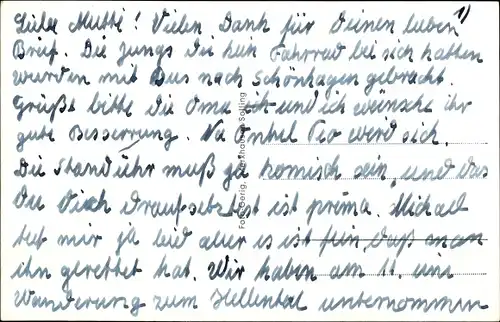 1)
Liebe Mutti! Vielen Dank für Deinen lieben
Brief. Die Jungs die kein Fahrrad bei sich hatten
wurden mit Bus nach Schönhagen gebracht.
Grüße bitte die Oma ich und ich wünsche ihr
gute Besserung. Na Onkel wird sich.
Die Standuhr muß ja komisch sein, und das
Du Dich draufsetztest ist prima. Michael
tut mir ja leid aber es ist fein, daß man
ihn gerettet hat. Wir haben am 11. eine
Wanderung zum Hellental unternommen